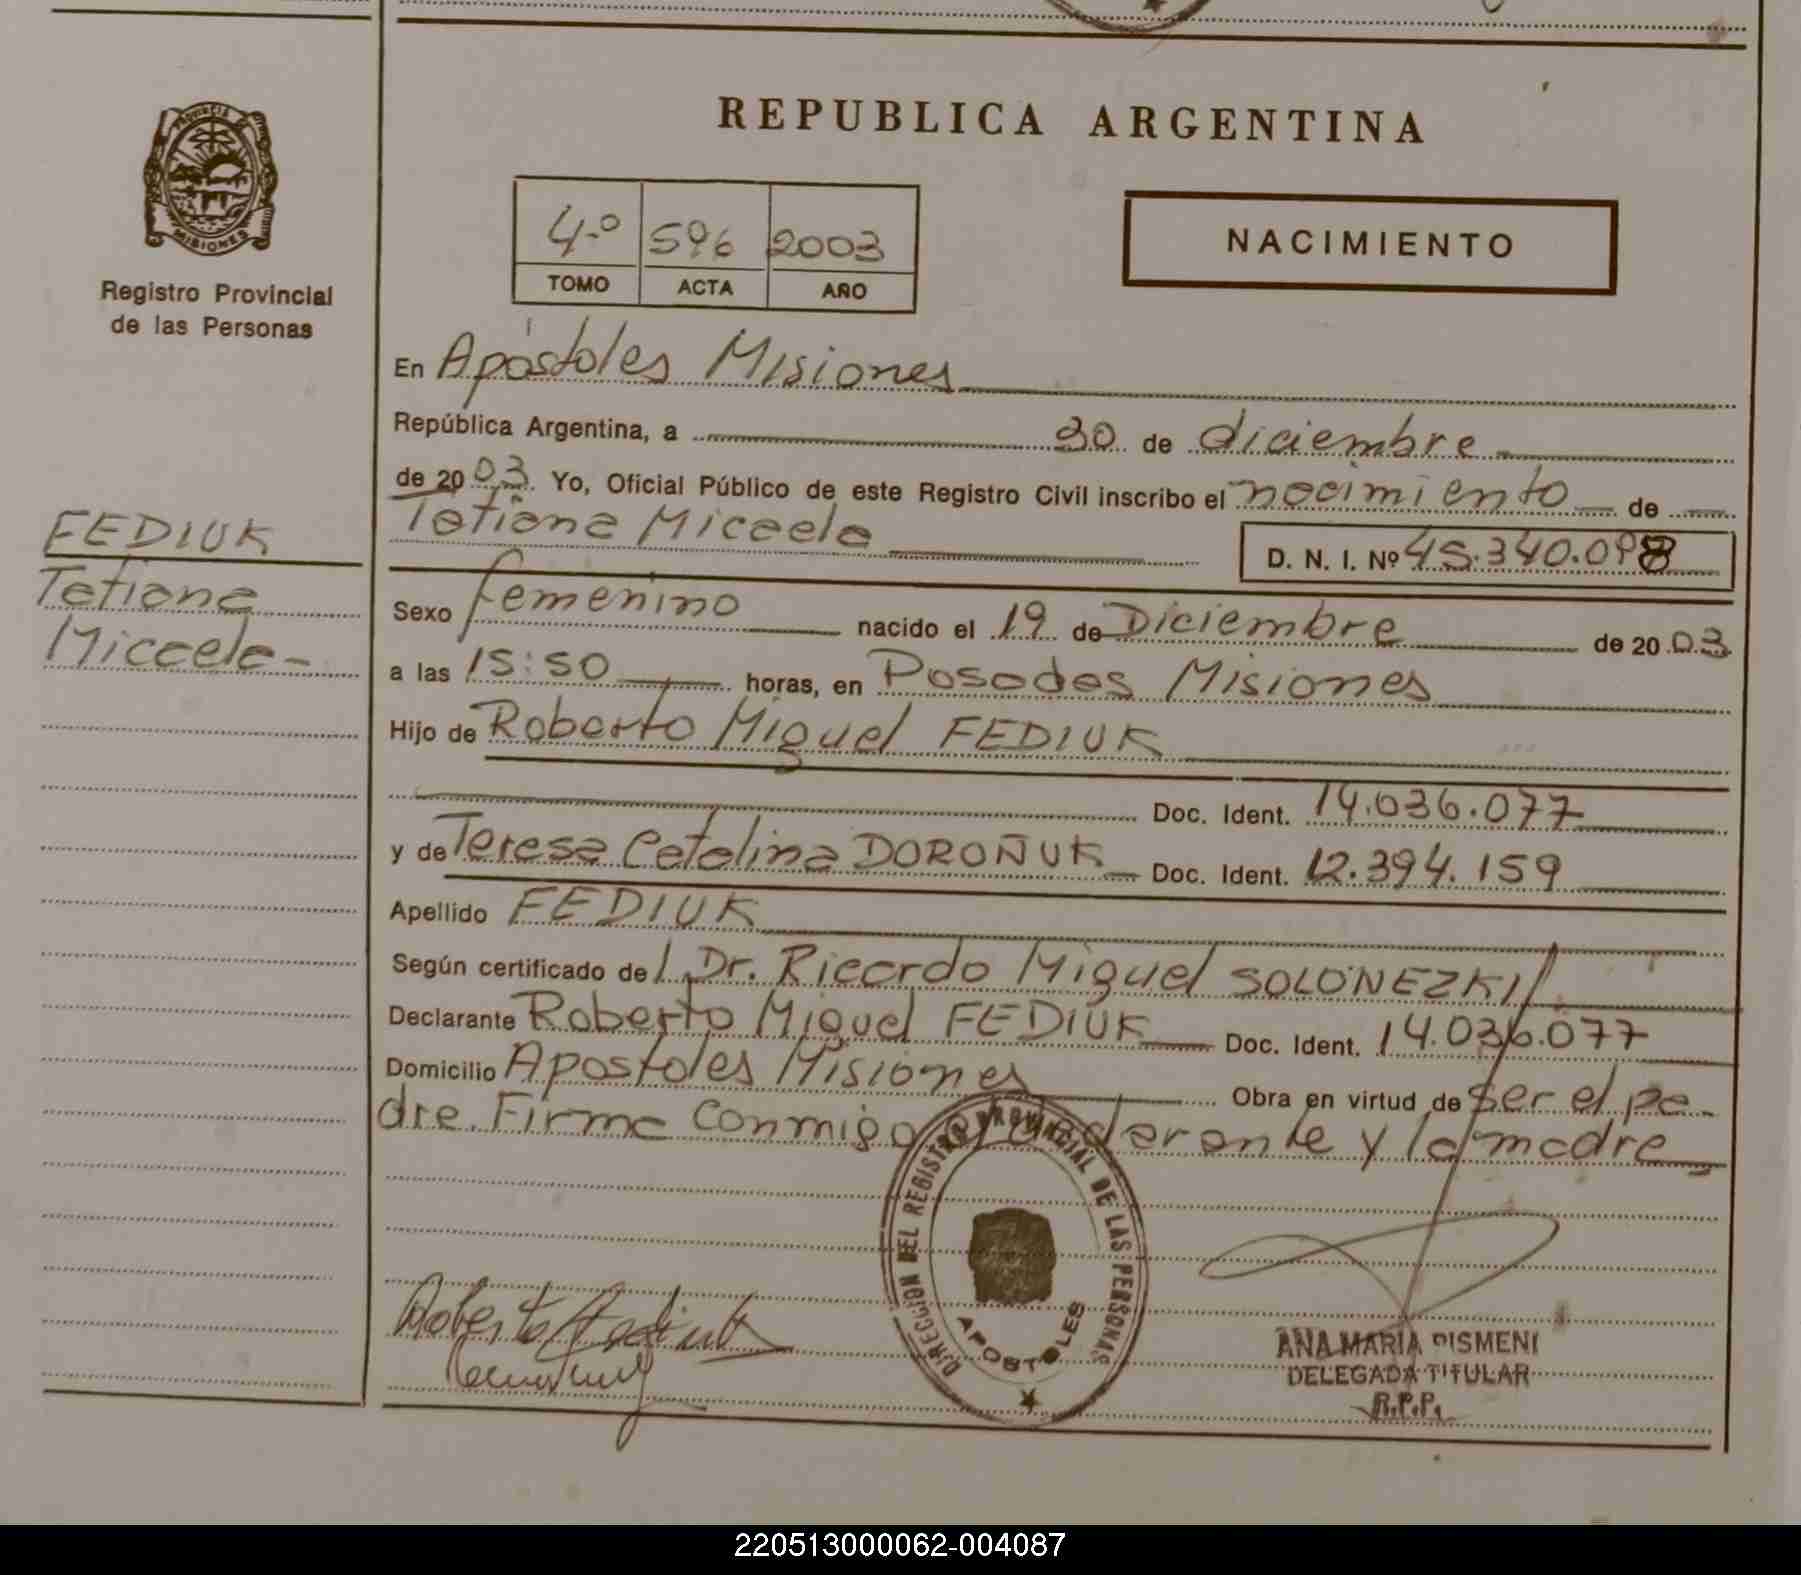 REPUBLICA ARGENTINA
PROVINCIA
MISIONES
Registro Provincial
de las Personas
4º 596 2003
TOMO ACTA AÑO
NACIMIENTO
En Apóstoles Misiones
República Argentina, a 30 de diciembre
de 2003. Yo, Oficial Público de este Registro Civil inscribo el nacimiento de
Tatiana Micaela
D. N. I. Nº 45.340.098
FEDIUK
Tatiana
Micaela
Sexo femenino nacido el 19 de Diciembre de 2003
a las 15:50 horas, en Posadas Misiones
Hijo de Roberto Miguel FEDIUK
Doc. Ident. 14.036.077
y de Teresa Catalina DOROÑUK Doc. Ident. 12.394.159
Apellido FEDIUK
Según certificado del Dr. Ricardo Miguel SOLONEZKI
Declarante Roberto Miguel FEDIUK Doc. Ident. 14.036.077
Domicilio Apostoles Misiones Obra en virtud de ser el pa-
dre. Firma conmigo declarante y la madre
DIRECCION DEL REGISTRO PROVINCIAL DE LAS PERSONAS
APOSTOLES
Roberto Fediuk
ANA MARIA PISMENI
DELEGADA TITULAR
R.P.P.
220513000062-004087